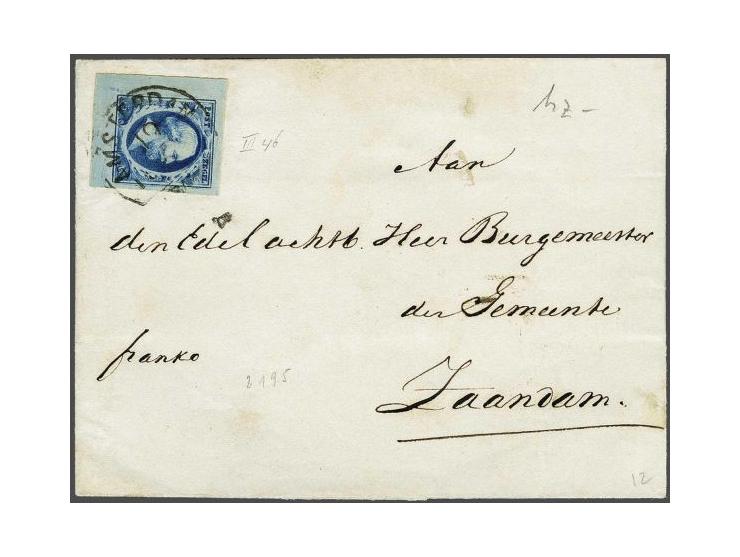 AMSTERDAM
POST
ZEGEL
hz -
III 46
Aan
den Edel achtb. Heer Burgemeester
der Gemeente
franko
Zaandam.
2195
12